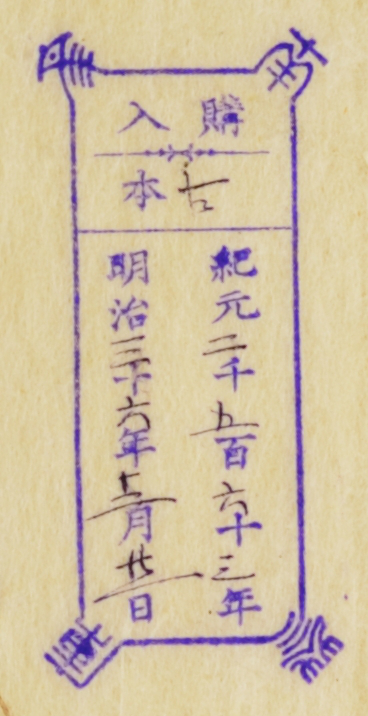 購入
古本
紀元二千五百六十三年
明治三十六年十二月廿一日